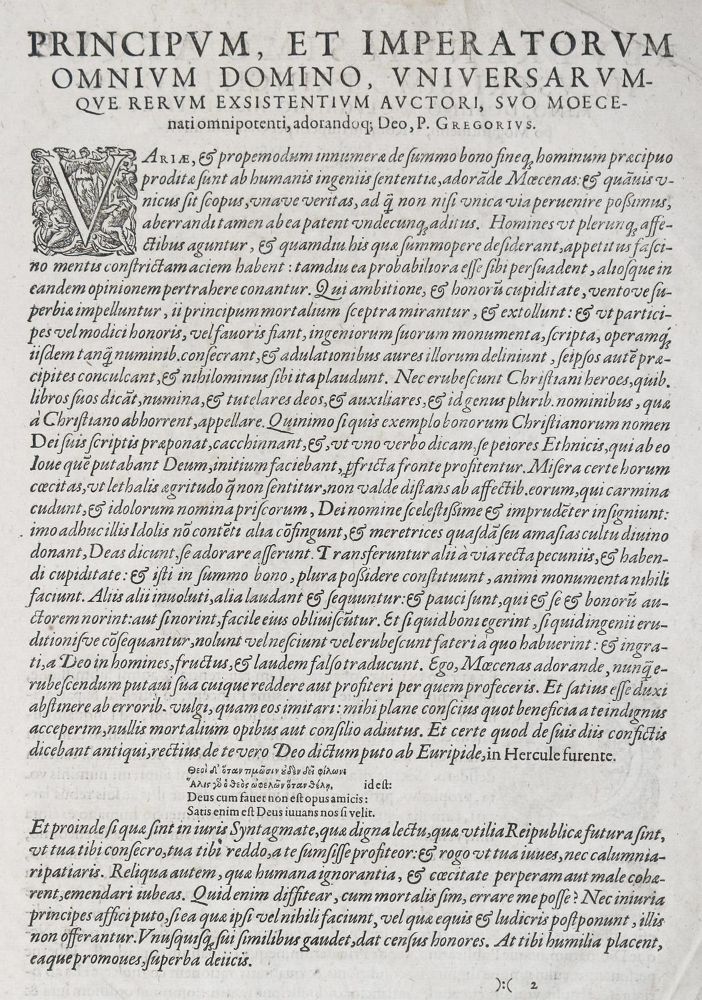 PRINCIPVM, ET IMPERATORVM
OMNIVM DOMINO, VNIVERSARVM-
QVE RERVM EXSISTENTIVM AVCTORI, SVO MOECE-
nati omnipotenti, adorandoq; Deo, P. GREGORIVS.
VARIÆ, & propemodum innumeræ de summo bono fineq, hominum præcipuo
proditæ sunt ab humanis ingeniis sententiæ, adorãde Mœcenas: & quãuis v-
nicus sit scopus, vnave veritas, ad q̃ non nisi vnica via peruenire possimus,
aberrandi tamen ab ea patent vndecunq; aditus. Homines vt plerunq; affe-
ctibus aguntur, & quamdiu his quæ summopere desiderant, appetitus fasci-
no mentis constrictam aciem habent: tamdiu ea probabiliora esse sibi persuadent, aliosque in
eandem opinionem pertrahere conantur. Qui ambitione, & honorũ cupiditate, vento ve su-
perbiæ impelluntur, ii principum mortalium sceptra mirantur, & extollunt: & vt partici-
pes vel modici honoris, vel fauoris fiant, ingeniorum suorum monumenta, scripta, operamq;
iisdem tanq̃ numinib. consecrant, & adulationibus aures illorum deliniunt, seipsos autẽ præ-
cipites conculcant, & nihilominus sibi ita plaudunt. Nec erubescunt Christiani heroes, quib.
libros suos dicãt, numina, & tutelares deos, & auxiliares, & id genus plurib. nominibus, quæ
à Christiano abhorrent, appellare. Quinimo si quis exemplo bonorum Christianorum nomen
Dei suis scriptis præponat, cacchinnant, &, vt vno verbo dicam, se peiores Ethnicis, qui ab eo
Ioue quẽ putabant Deum, initium faciebant, ꝑfricta fronte profitentur. Misera certe horum
cœcitas, vt lethalis ægritudo q̃ non sentitur, non valde distans ab affectib. eorum, qui carmina
cudunt, & idolorum nomina priscorum, Dei nomine scelestissime & imprudẽter insigniunt:
imo adhuc illis Idolis nõ contẽti alia cõfingunt, & meretrices quasdã seu amasias cultu diuino
donant, Deas dicunt, se adorare asserunt. Transferuntur alii à via recta pecuniis, & haben-
di cupiditate: & isti in summo bono, plura possidere constituunt, animi monumenta nihili
faciunt. Aliis alii inuoluti, alia laudant & sequuntur: & pauci sunt, qui & se & bonorũ au-
ctorem norint: aut si norint, facile eius obliuiscũtur. Et si quid boni egerint, si quid ingenii eru-
ditionisve cõsequantur, nolunt vel nesciunt vel erubescunt fateri à quo habuerint: & ingra-
ti, a Deo in homines, fructus, & laudem falso traducunt. Ego, Mœcenas adorande, nunq̃ e-
rubescendum putaui sua cuique reddere aut profiteri per quem profeceris. Et satius esse duxi
abstinere ab errorib. vulgi, quam eos imitari: mihi plane conscius quot beneficia a te indignus
acceperim, nullis mortalium opibus aut consilio adiutus. Et certe quod de suis diis confictis
dicebant antiqui, rectius de te vero Deo dictum puto ab Euripide, in Hercule furente.
Θεοὶ δ' ὅταν τιμῶσιν οὐδὲν δεῖ φίλων·
Ἅλις γὰρ ὁ θεὸς ὠφελῶν ὅταν θέλῃ. id est:
Deus cum fauet non est opus amicis:
Satis enim est Deus iuuans nos si velit.
Et proinde si quæ sint in iuris Syntagmate, quæ digna lectu, quæ vtilia Reipublicæ futura sint,
vt tua tibi consecro, tua tibi reddo, a te sumsisse profiteor: & rogo vt tua iuues, nec calumnia-
ri patiaris. Reliqua autem, quæ humana ignorantia, & cœcitate perperam aut male cohæ-
rent, emendari iubeas. Quid enim diffitear, cum mortalis sim, errare me posse? Nec iniuria
principes affici puto, si ea quæ ipsi vel nihili faciunt, vel quæ equis & ludicris postponunt, illis
non offerantur. Vnusquisq; sui similibus gaudet, dat census honores. At tibi humilia placent,
eaque promoues, superba deiicis.
):( 2